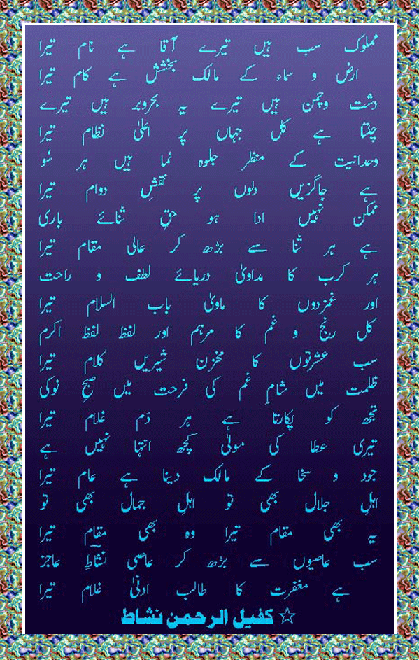 مملوک سب ہیں تیرے آقا ہے نام تیرا
ارض و سماء کے مالک بخشش ہے کام تیرا
دشت و چمن ہیں تیرے یہ بحر و بر ہیں تیرے
چلتا ہے کل جہاں پر اعلیٰ نظام تیرا
وحدانیت کے منظر جلوہ نما ہیں ہر سُو
ہے جاگزیں دلوں پر نقشِ دوام تیرا
ممکن نہیں ادا ہو حقِ ثنائے باری
ہے ہر ثنا سے بڑھ کر عالی مقام تیرا
ہر کرب کا مداویٰ دریائے لطف و راحت
اور غمزدوں کا ماویٰ باب السلام تیرا
کل رنج و غم کا مرہم اور لفظ لفظ اکرم
سب عشرتوں کا مخزن شیریں کلام تیرا
ظلمت میں شامِ غم کی فرحت میں صبحِ نو کی
تجھ کو پکارتا ہے ہر دَم غلام تیرا
تیری عطا کی مولیٰ کچھ انتہا نہیں ہے
جود و سخا کے مالک دینا ہے عام تیرا
اہلِ جلال بھی تو اہلِ جمال بھی تو
یہ بھی مقام تیرا وہ بھی مقام تیرا
سب عاصیوں سے بڑھ کر عاصی نشاطؔ عاجز
ہے مغفرت کا طالب ادنیٰ غلام تیرا
☆ کفیل الرحمن نشاط